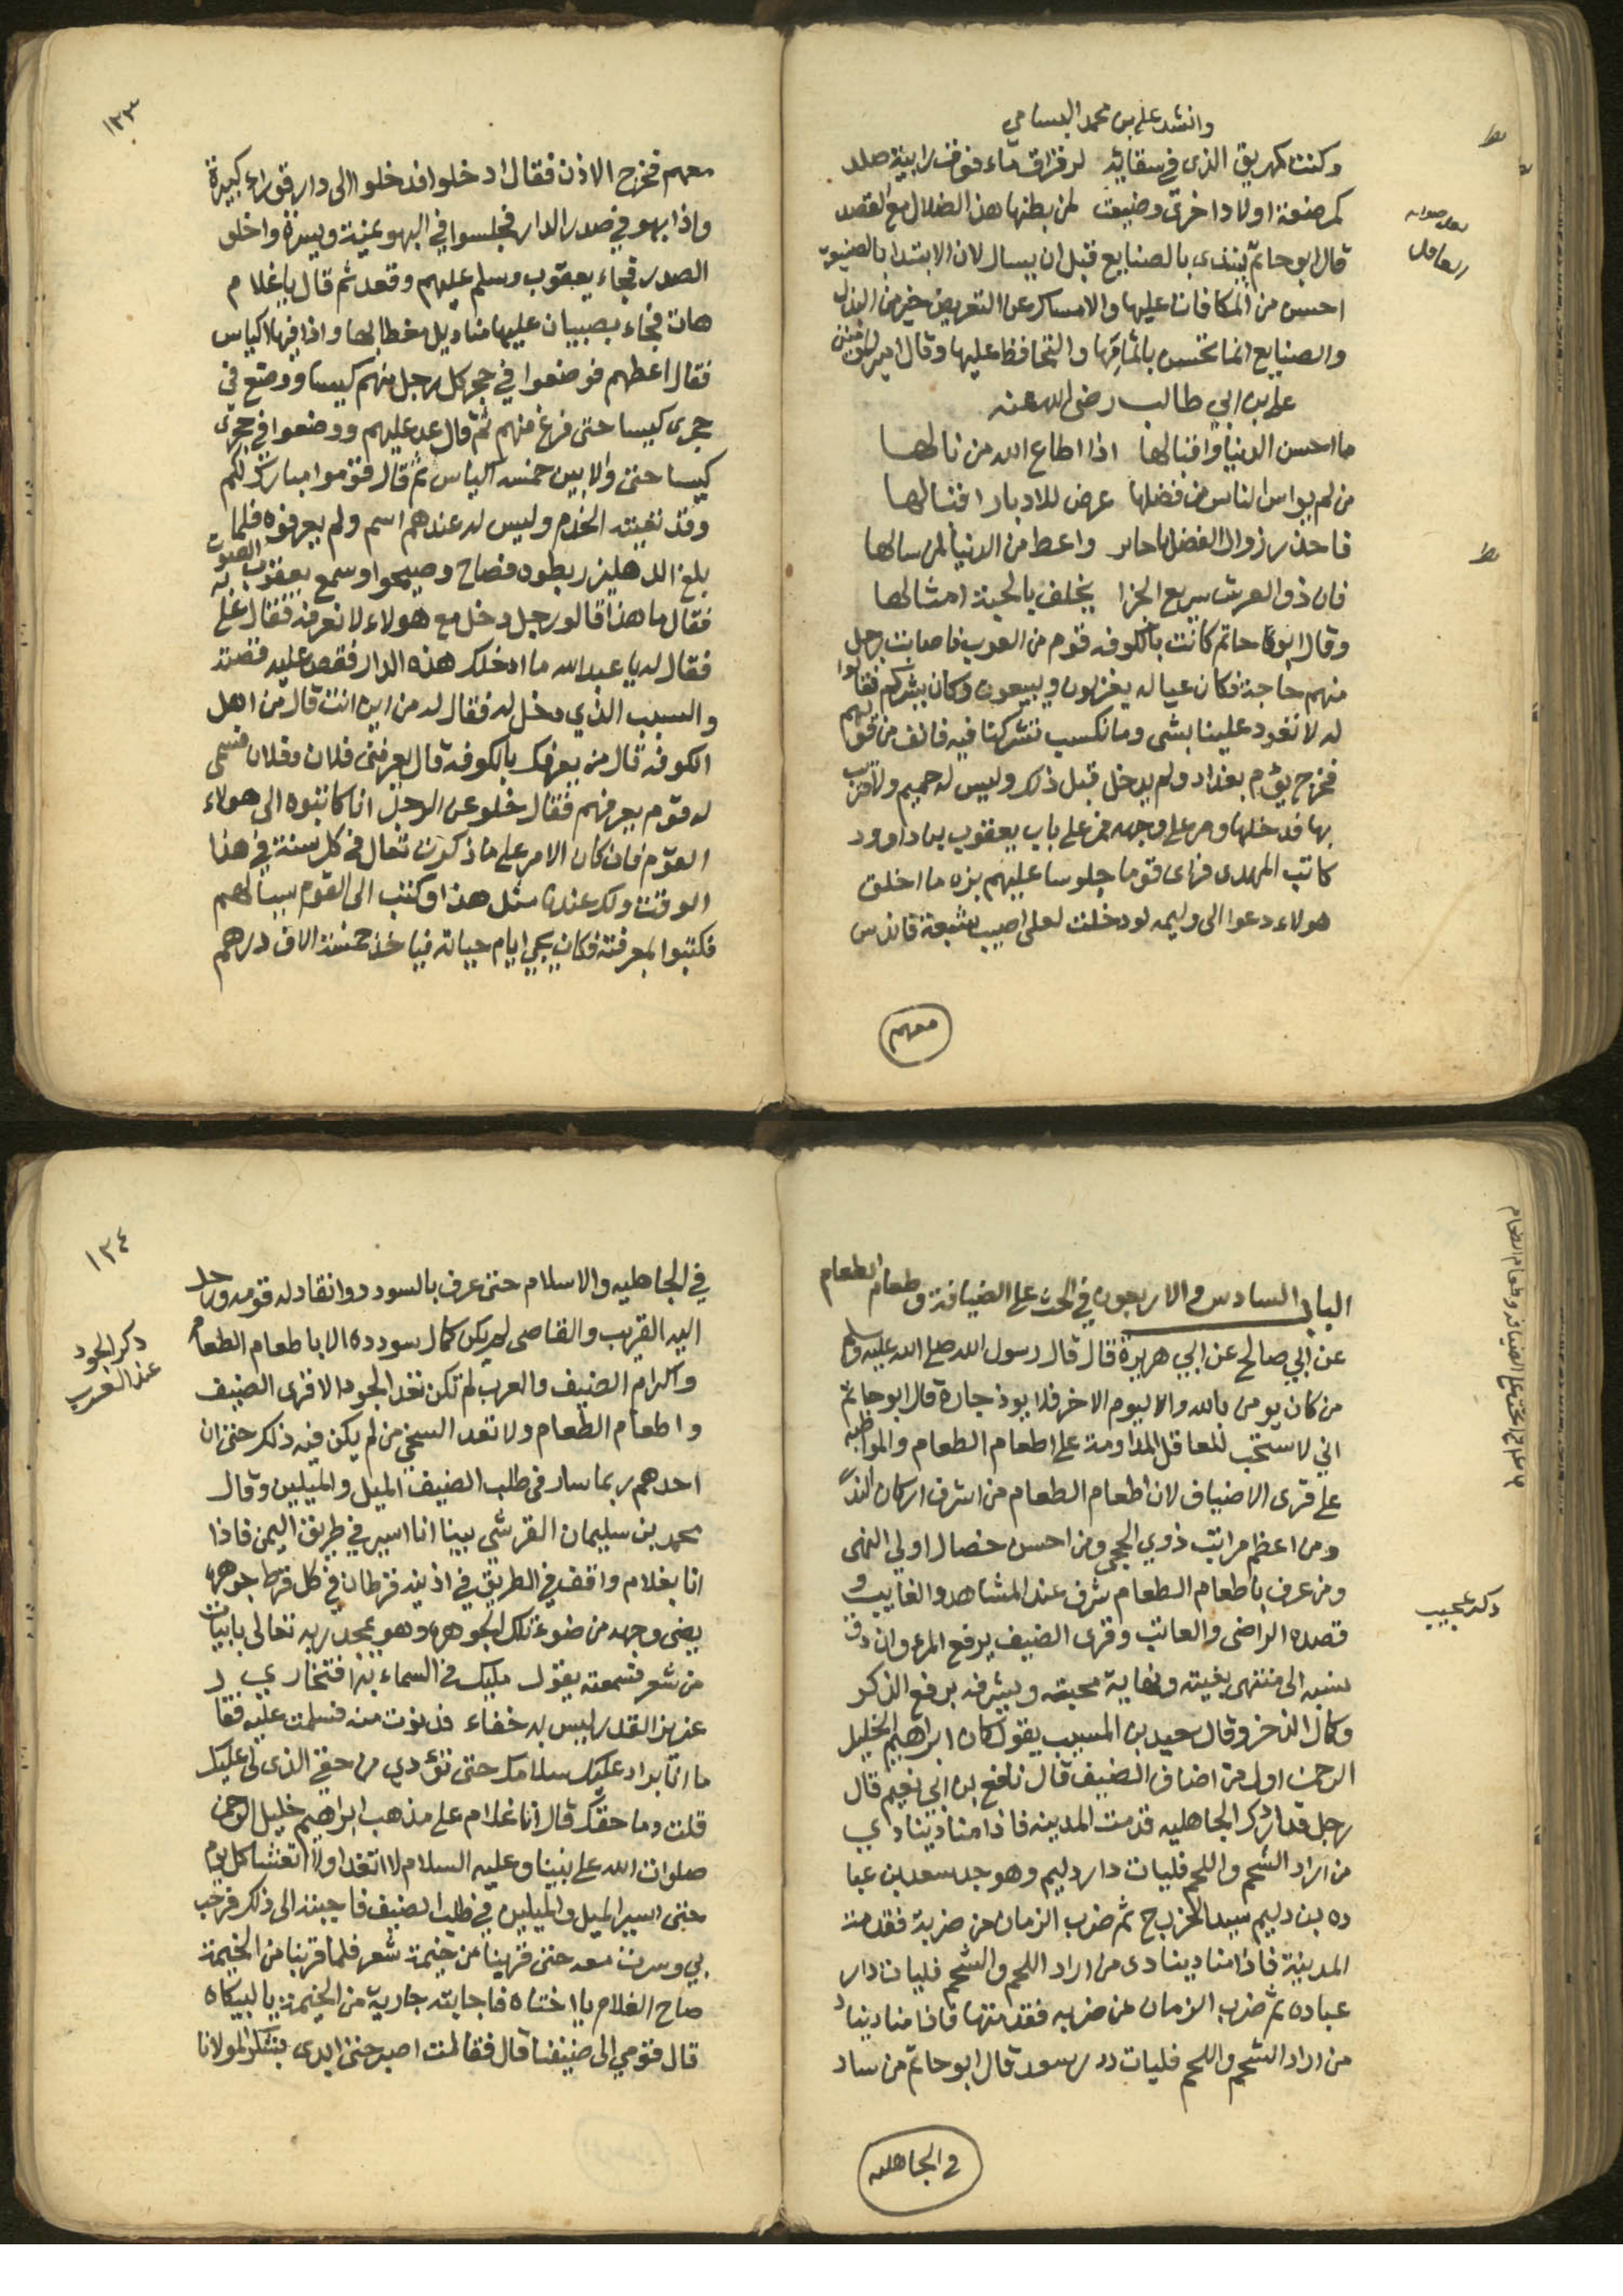 وانشد علي بن محمد البسامي
وكنت كمهريق الذي في سقايه لرقراق ماء فوق رابية صلد
كمرضعة اولاد اخرى وضيعت لمن بطنها هذا الضلال مع القصد
قال ابو حاتم يبتدي بالصنايع قبل ان يسال لان الابتدا بالصنيعة
احسن من المكافات عليها والامساك عن التعريض خير من البذل
والصنايع انما تحسن باتمامها والتحافظ عليها وقال امير المومنين
علي بن ابي طالب رضي الله عنه
ما احسن الدنيا واقبالها اذا اطاع الله من نالها
من لم يواس الناس من فضلها عرض للادبار اقبالها
فاحذر زوال الفضل يا جابر واعط من الدنيا لمن سالها
فان ذو العرش سريع الجزا يخلف بالحبة امثالها
وقال ابو حاتم كانت بالكوفه قوم من العرب فاصابت رجل
منهم حاجة فكان عياله يغزلون ويبيعون وكان يشركهم فقالوا
له لا تعود علينا بشي وما نكسب تشركنا فيه فانف من قولهم
فخرج يؤم بغداد ولم يدخل قبل ذلك وليس له حميم ولا قريب
بها فدخلها ومر على وجهه فمر على باب يعقوب بن داوود
كاتب المهدي فراى قوما جلوسا عليهم بزه ما اخلق
هولاء دعوا الى وليمه لو دخلت لعلي اصيب شبعة فاندس
معهم
لعل صوابه
العاقل
١٣٣
معهم فخرج الاذن فقال ادخلوا فدخلوا الى دار قوراء كبيرة
واذا بهو في صدر الدار فجلسوا في البهو يمنة ويسرة واخلو
الصدر فجاء يعقوب وسلم عليهم وقعد ثم قال يا غلام
هات فجاء بصبيان عليها مناديل مغطا بها واذا فيها اكياس
فقال اعطهم فوضعوا في حجر كل رجل منهم كيسا ووضع في
حجري كيسا حتى فرغ منهم ثم قال عد عليهم ووضعوا في حجري
كيسا حتى والا بين خمسة اكياس ثم قال قوموا مبارك لكم
وقد نغبته الخدم وليس له عندهم اسم ولم يعرفوه فلما
بلغ الدهليز ربطوه فصاح وصيحوا وسمع يعقوب الصوت
فقال ما هذا قالو رجل دخل مع هولاء لا نعرفه فقال علي به
فقال له يا عبد الله ما ادخلك هذه الدار فقص عليه قصته
والسبب الذي دخل له فقال له من اين انت قال من اهل
الكوفه قال من يعرفك بالكوفه قال يعرفني فلان وفلان فسمى
له قوم يعرفهم فقال خلو عن الرجل انا كاتبوه الى هولاء
القوم فان كان الامر على ما ذكرت تعال في كل سنة في هذا
الوقت ولك عندنا مثل هذا وكتب الى القوم يسالهم
فكتبوا بمعرفته فكان يجي ايام حياته فياخذ خمسة الاف درهم
الباب السادس والاربعون في الحث على الضيافة وطعام الطعام
عن ابي صالح عن ابي هريرة قال قال رسول الله صلى الله عليه وسلم
من كان يومن بالله والاليوم الاخر فلا يوذ جاره قال ابو حاتم
اني لاستحب للعاقل المداومة على اطعام الطعام والمواظبه
على قرى الاضياف لان اطعام الطعام من اشرف اركان الندا
ومن اعظم مراتب ذوي الحجى ومن احسن خصال اولي النهى
ومن عرف باطعام الطعام شرف عند المشاهد والغايب و
قصده الراضي والعاتب وقرى الضيف يرفع المرء وان دق
نسبه الى منتهى بغيته ونهاية محبته ويشرفه برفع الذكر
وكال الذخر وقال سعيد بن المسيب يقول كان ابراهيم الخليل
الرحمن اول من اضاف الضيف قال نافع بن ابي نعيم قال
رجل قد ادرك الجاهليه قدمت المدينه فاذا مناد ينادي
من اراد الشحم واللحم فليات دار دليم وهو جد سعد بن عبا
ده بن دليم سيد الخزرج ثم ضرب الزمان من ضربة فقدمت
المدينة فاذا مناد ينادى من اراد اللحم والشحم فليات دار
عباده ثم ضرب الزمان من ضربه فقدمتها فاذا مناد يناد
من اراد الشحم واللحم فليات دار سعد قال ابو حاتم من ساد
في الجاهليه
ذكر عجيب
١٣٤
في الجاهليه والاسلام حتى عرف بالسودد وانقاد له قومه ورحل
اليه القريب والقاصي لم يكن كمال سودده الا باطعام الطعام
واكرام الضيف والعرب لم تكن تعد الجود الا قرى الضيف
واطعام الطعام ولا تعد السخي من لم يكن فيه ذلك حتى ان
احدهم ربما سار في طلب الضيف الميل والميلين وقال
محمد بن سليمان القرشي بينا انا اسير في طريق اليمن فاذا
انا بغلام واقف في الطريق في اذنيه قرطان في كل قرط جوهره
يضي وجهه من ضوء تلك الجوهره وهو يمجد ربه تعالى بابيات
من شعر فسمعته يقول مليك في السماء به افتخاري
عزيز القدر ليس له خفاء فدنوت منه فسلمت عليه فقا
ما انا براد عليك سلامك حتى تؤدي من حقي الذي لي عليك
قلت وما حقك قال انا غلام على مذهب ابراهيم خليل الرحمن
صلوات الله على نبينا وعليه السلام لا اتغدا ولا اتعشا كل يوم
حتى اسير الميل والميلين في طلب الضيف فاجبته الى ذلك فرحب
بي وسرت معه حتى قربنا من خيمة شعر فلما قربنا من الخيمة
صاح الغلام يا اختاه فاجابته جارية من الخيمة يا لبيكاه
قال قومي الى ضيفنا قال فقالت اصبر حتى ابدى بشكر لمولانا
ذكر الجود
عند العرب